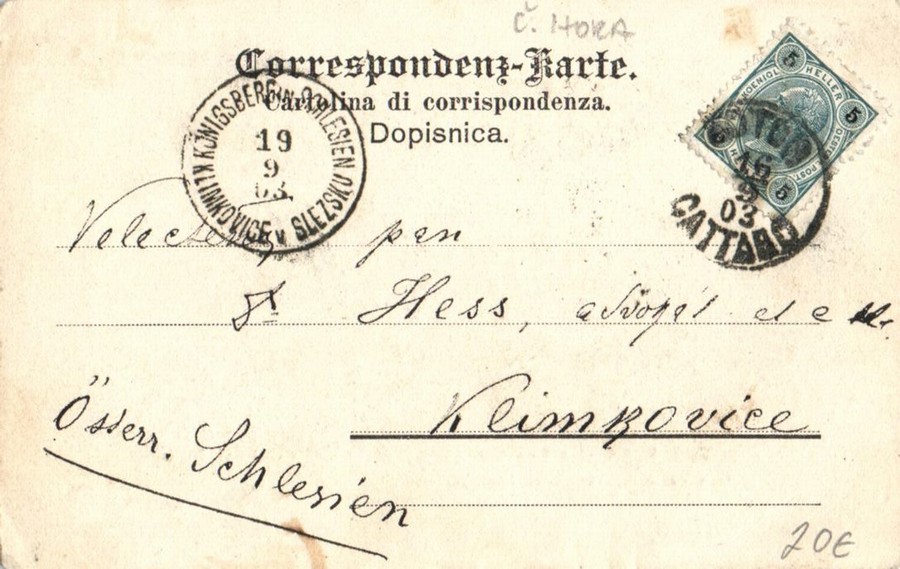 Č. HORA
Correspondenz-Karte.
Cartolina di corrispondenza.
Dopisnica.
KÖNIGSBERG IN SCHLESIEN
19
9
03
KLIMKOVICE v SLEZSKU
5 HELLER 5
5 5
CATTARO
16
9
03
pan
Hess, advokát
Klimkovice
Österr. Schlesien
20€